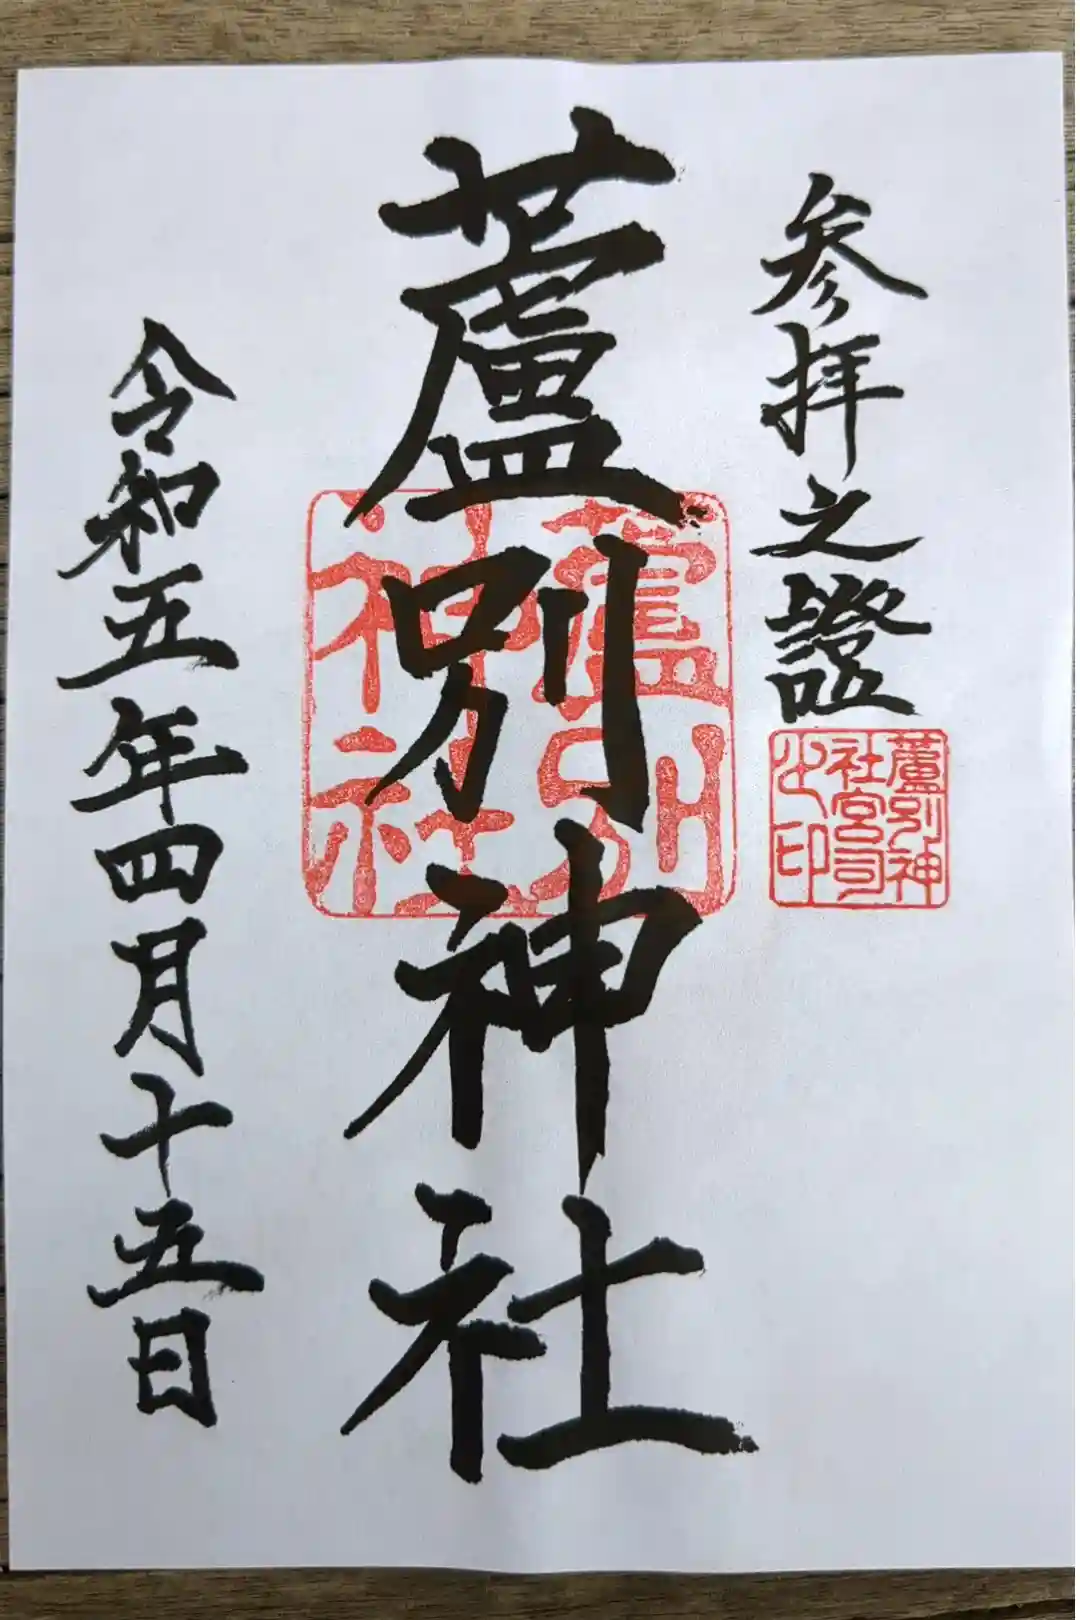 参拝之證
蘆別神
社宮司
之印
蘆別神社
蘆別
神社
令和五年四月十五日